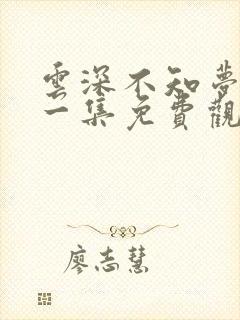 雲深不知夢
一集免費觀
廖志慧